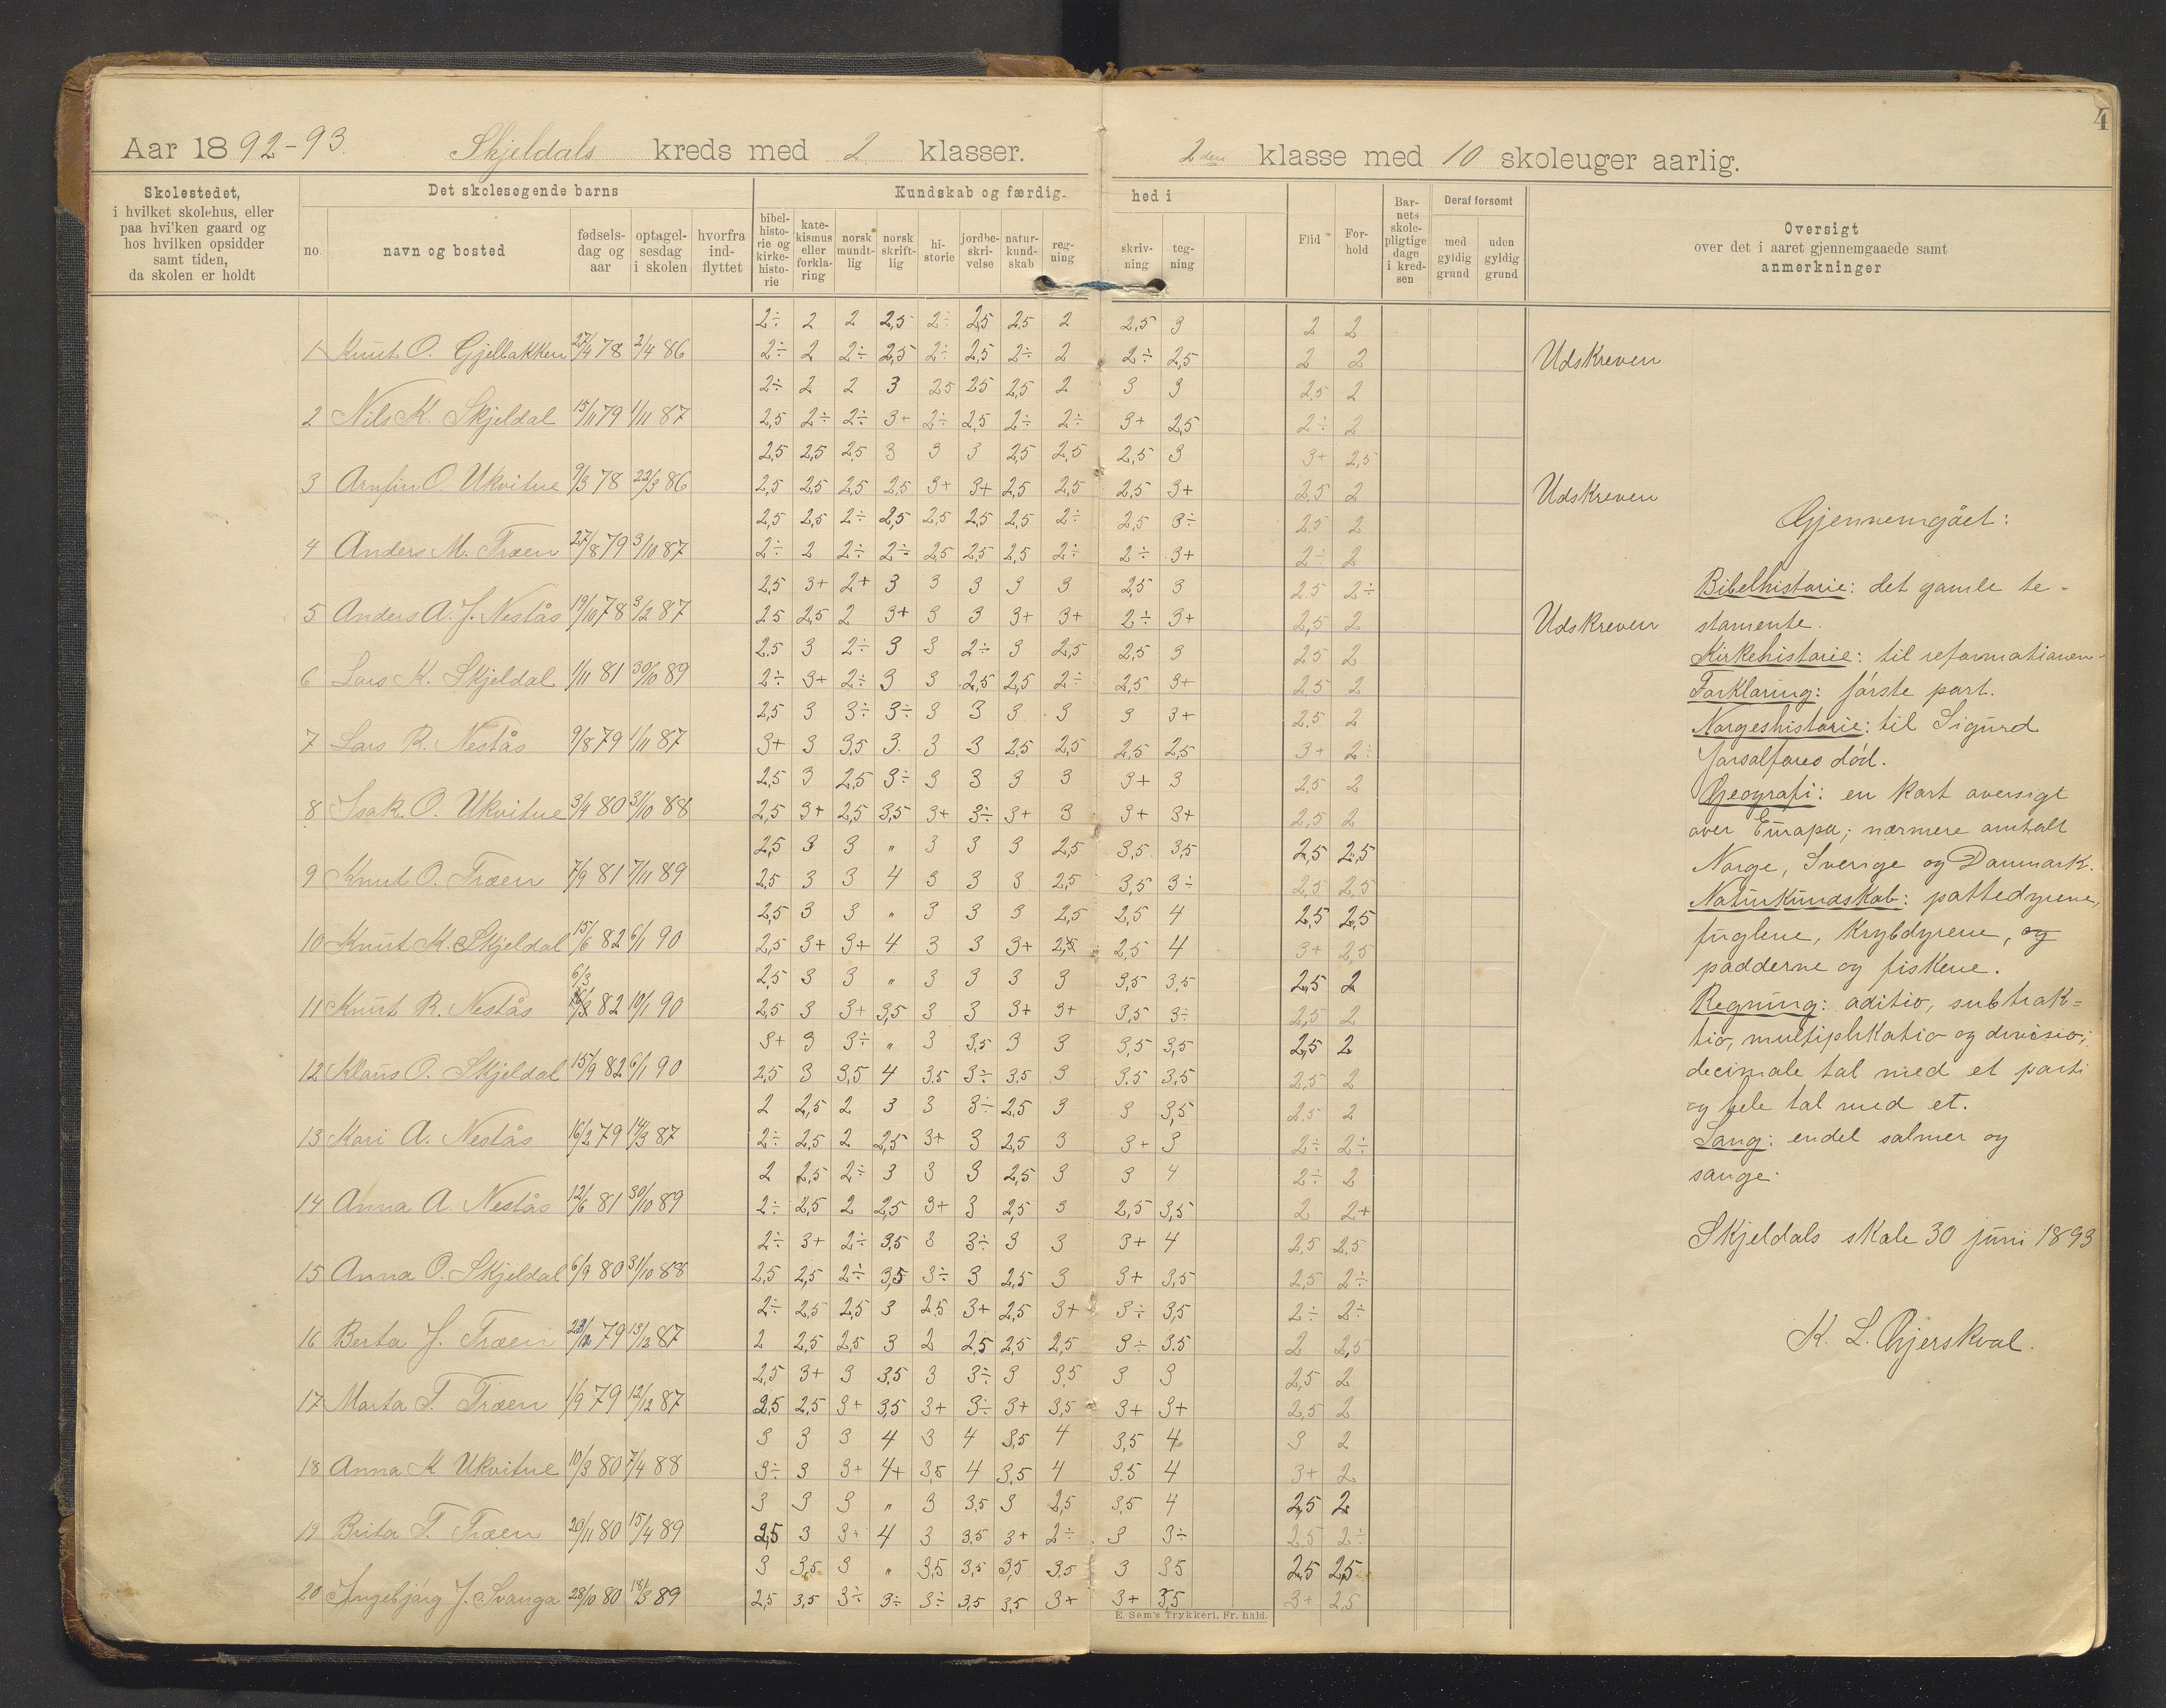 4
Aar 1892-93. Skjeldals kreds med 2 klasser. 2den klasse med 10 skoleuger aarlig.
Skolestedet,
i hvilket skolehus, eller
paa hvilken gaard og
hos hvilken opsidder
samt tiden,
da skolen er holdt
Det skolesøgende barns
no.
navn og bosted
fødsels-
dag og
aar
optagel-
sesdag
i skolen
hvorfra
ind-
flyttet
Kundskab og færdig-
hed i
bibel-
histo-
rie og
kirke-
histo-
rie
kate-
kismus
eller
forkla-
ring
norsk
mundt-
lig
norsk
skrift-
lig
hi-
storie
jordbe-
skri-
velse
natur-
kund-
skab
reg-
ning
skriv-
ning
teg-
ning
Flid
For-
hold
Bar-
nets
skole-
pligtige
dage
i kred-
sen
Deraf forsømt
med
gyldig
grund
uden
gyldig
grund
Oversigt
over det i aaret gjennemgaaede samt
anmerkninger
2÷ 2 2 2,5 2÷ 2,5 2,5 2 2,5 3 2 2
1 Knut O. Gjelbakken 27/4 78 2/4 86 2÷ 2 2÷ 2,5 2÷ 2,5 2÷ 2 2÷ 2,5 2 2 Udskreven
2÷ 2 2 3 2,5 2,5 2,5 2 3 3 2,5 2
2 Nils K. Skjeldal 15/11 79 1/11 87 2,5 2÷ 2÷ 3+ 2÷ 2,5 2÷ 2÷ 3+ 2,5 2÷ 2
2,5 2,5 2,5 3 3 3 2,5 2,5 2,5 3 3+ 2,5
3 Arnfin O. Ukvitne 9/3 78 22/3 86 2,5 2,5 2,5 2,5 3+ 3+ 2,5 2,5 2,5 3+ 2,5 2 Udskreven
2,5 2,5 2÷ 2,5 2,5 2,5 2,5 2÷ 2,5 3÷ 2,5 2
4 Anders M. Træen 27/8 79 3/10 87 2÷ 2 2÷ 2÷ 2,5 2,5 2,5 2÷ 2÷ 3+ 2÷ 2
2,5 3+ 2+ 3 3 3 3 3 2,5 3 2,5 2÷
5 Anders A. J. Nestås 19/10 78 3/2 87 2,5 2,5 2 3+ 3 3 3+ 3+ 2÷ 3+ 2,5 2 Udskreven
2,5 3 2÷ 3 3 2÷ 3 2,5 2,5 3 2,5 2
6 Lars K. Skjeldal 1/11 81 30/10 89 2÷ 3+ 2÷ 3 3 2,5 2,5 2÷ 2,5 3+ 2,5 2
2,5 3 3÷ 3÷ 3 3 3 3 3 3+ 2,5 2
7 Lars R. Nestås 9/8 79 1/11 87 3+ 3 3,5 3 3 3 2,5 2,5 2,5 2,5 3+ 2÷
2,5 3 2,5 3÷ 3 3 3 3 3+ 3 2,5 2
8 Isak O. Ukvitne 3/4 80 31/10 88 2,5 3+ 2,5 3,5 3+ 3÷ 3+ 3 3+ 3+ 2,5 2
2,5 3 3 " 3 3 3 2,5 3,5 3,5 2,5 2,5
9 Knut O. Træen 7/9 81 7/11 89 2,5 3 3 4 3 3 3 2,5 3,5 3÷ 2,5 2,5
2,5 3 3 " 3 3 3 2,5 2,5 4 2,5 2,5
10 Knut K. Skjeldal 15/6 82 6/1 90 2,5 3+ 3+ 4 3 3 3+ 2,5 2,5 4 3+ 2,5
6/3 2,5 3 3 " 3 3 3 3 3,5 3,5 2,5 2
11 Knut R. Nestås 82 10/1 90 2,5 3 3+ 3,5 3 3 3+ 3+ 3,5 3÷ 2,5 2
3+ 3 3÷ " 3 3,5 3 3 3,5 3,5 2,5 2
12 Klaus O. Skjeldal 15/9 82 6/1 90 2,5 3 3,5 4 3,5 3÷ 3,5 3 3,5 3,5 2,5 2
2 2,5 2 3 3 3÷ 2,5 3 3 3,5 2,5 2
13 Kari A. Nestås 16/2 79 14/3 87 2÷ 2,5 2 2,5 3+ 3 2,5 3 3+ 3 2÷ 2÷
2 2,5 2÷ 3 3 3 2,5 3 3 4 2÷ 2
14 Anna A. Nestås 12/6 81 30/10 89 2÷ 2,5 2 2,5 3+ 3 2,5 3 2,5 3,5 2 2+
2÷ 3+ 2÷ 3,5 3 3÷ 3 3 3+ 4 2,5 2,5
15 Anna O. Skjeldal 6/9 80 31/10 88 2,5 2,5 2÷ 3,5 3÷ 3 2,5 3 3+ 3,5 2,5 2÷
2÷ 2,5 2,5 3 2,5 3+ 2,5 3+ 3÷ 3,5 2÷ 2÷
16 Berta J. Træen 79 13/12 87 2 2,5 2,5 3 2 2,5 2,5 2,5 3÷ 3,5 2 2,5
2,5 3+ 3 3,5 3 3÷ 3 3,5 3 3 2,5 2
17 Marta T. Træen 1/9 79 12/12 87 2,5 2,5 3+ 3,5 3+ 3÷ 3+ 3,5 3+ 3+ 2,5 2
3 3 3 4 3 4 3,5 4 3,5 4 3 2
18 Anna K Ukvitne 10/3 80 7/4 88 3÷ 3 3+ 4+ 3,5 4 3,5 4 3,5 4 3+ 2
3 3 3 " 3 3,5 3 2,5 3,5 4 2,5 2
19 Brita T. Træen 20/11 80 15/4 89 2,5 3 3+ 4 3 3,5 3+ 2÷ 3 3÷ 2,5 2÷
3 3,5 3 " 3,5 3,5 3,5 3,5 3 3,5 2,5 2,5
20 Ingebjørg J. Svanga 28/10 80 18/3 89 2,5 3,5 3÷ 3÷ 3÷ 3,5 3,5 3+ 3+ 3,5 3+ 2,5
E. Sem's Trykkeri, Fr. hald.
Gjennemgået:
Bibelhistorie: det gamle te-
stamente.
Kirkehistorie: til reformationen.
Forklaring: første part.
Norgeshistorie: til Sigurd
Jorsalfares død.
Geografi: en kort oversigt
over Europa; nærmere omtalt
Norge, Sverige og Danmark.
Naturkundskab: pattedyrene,
fuglene, krybdyrene, og
padderne og fiskene.
Regning: aditio, subtrak-
tio, multiplikatio og divisio;
decimale tal med et parti
og hele tal med et.
Sang: endel salmer og
sange.
Skjeldals skole 30 juni 1893
K. L. Gjerskval.